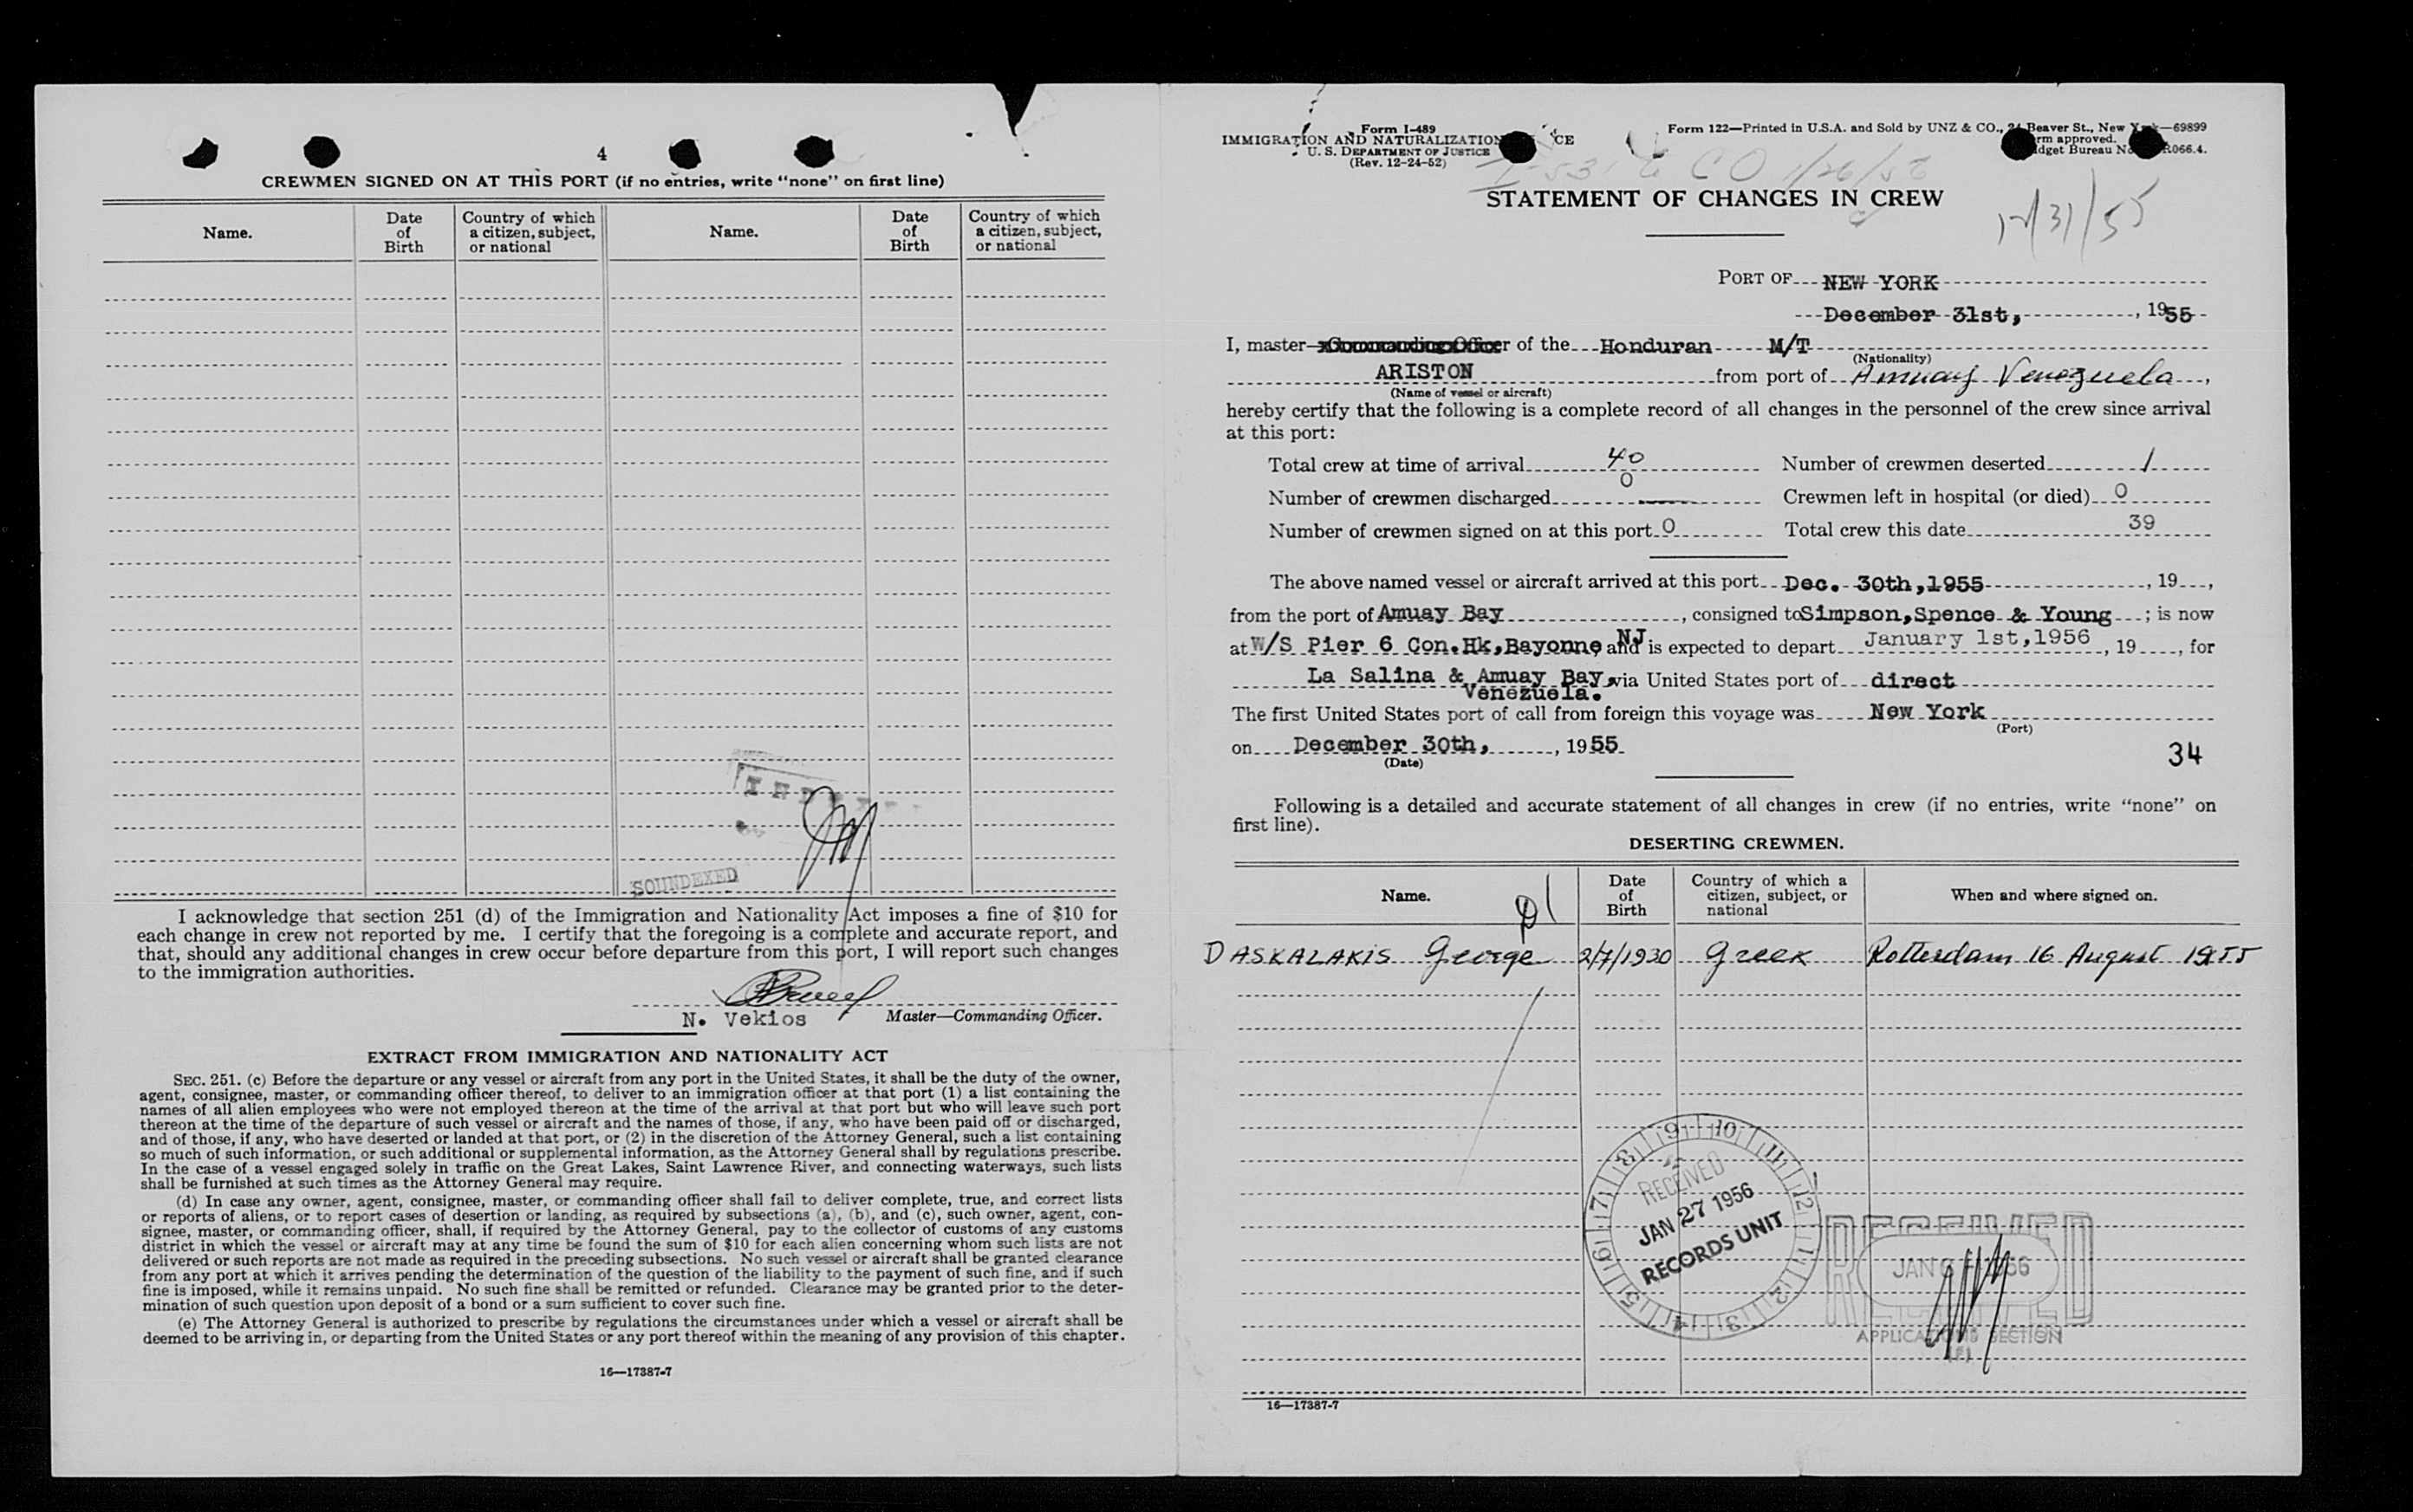 4
CREWMEN SIGNED ON AT THIS PORT (if no entries, write "none" on first line)
Name.
Date of Birth
Country of which a citizen, subject, or national
Name.
Date of Birth
Country of which a citizen, subject, or national
SOUNDEXED
I acknowledge that section 251 (d) of the Immigration and Nationality Act imposes a fine of $10 for
each change in crew not reported by me. I certify that the foregoing is a complete and accurate report, and
that, should any additional changes in crew occur before departure from this port, I will report such changes
to the immigration authorities.
N. Vekios
Master—Commanding Officer.
EXTRACT FROM IMMIGRATION AND NATIONALITY ACT
SEC. 251. (c) Before the departure or any vessel or aircraft from any port in the United States, it shall be the duty of the owner,
agent, consignee, master, or commanding officer thereof, to deliver to an immigration officer at that port (1) a list containing the
names of all alien employees who were not employed thereon at the time of the arrival at that port but who will leave such port
thereon at the time of the departure of such vessel or aircraft and the names of those, if any, who have been paid off or discharged,
and of those, if any, who have deserted or landed at that port, or (2) in the discretion of the Attorney General, such a list containing
so much of such information, or such additional or supplemental information, as the Attorney General shall by regulations prescribe.
In the case of a vessel engaged solely in traffic on the Great Lakes, Saint Lawrence River, and connecting waterways, such lists
shall be furnished at such times as the Attorney General may require.
(d) In case any owner, agent, consignee, master, or commanding officer shall fail to deliver complete, true, and correct lists
or reports of aliens, or to report cases of desertion or landing, as required by subsections (a), (b), and (c), such owner, agent, con-
signee, master, or commanding officer, shall, if required by the Attorney General, pay to the collector of customs of any customs
district in which the vessel or aircraft may at any time be found the sum of $10 for each alien concerning whom such lists are not
delivered or such reports are not made as required in the preceding subsections. No such vessel or aircraft shall be granted clearance
from any port at which it arrives pending the determination of the question of the liability to the payment of such fine, and if such
fine is imposed, while it remains unpaid. No such fine shall be remitted or refunded. Clearance may be granted prior to the deter-
mination of such question upon deposit of a bond or a sum sufficient to cover such fine.
(e) The Attorney General is authorized to prescribe by regulations the circumstances under which a vessel or aircraft shall be
deemed to be arriving in, or departing from the United States or any port thereof within the meaning of any provision of this chapter.
16—17387-7
Form I-489
IMMIGRATION AND NATURALIZATION CE
U. S. DEPARTMENT OF JUSTICE
(Rev. 12-24-52)
Form 122—Printed in U.S.A. and Sold by UNZ & CO., Beaver St., New —69899
rm approved.
dget Bureau No. R066.4.
STATEMENT OF CHANGES IN CREW
12/31/55
PORT OF NEW YORK
December 31st, , 1955
I, master of the Honduran M/T
(Nationality)
ARISTON from port of Amuay Venezuela,
(Name of vessel or aircraft)
hereby certify that the following is a complete record of all changes in the personnel of the crew since arrival
at this port:
Total crew at time of arrival 40 Number of crewmen deserted 1
Number of crewmen discharged 0 Crewmen left in hospital (or died) 0
Number of crewmen signed on at this port 0 Total crew this date 39
The above named vessel or aircraft arrived at this port Dec. 30th, 1955 , 19 ,
from the port of Amuay Bay , consigned to Simpson, Spence & Young ; is now
at W/S Pier 6 Con.Hk, Bayonne NJ and is expected to depart January 1st, 1956 , 19 , for
La Salina & Amuay Bay, via United States port of direct
Venezuela.
The first United States port of call from foreign this voyage was New York
(Port)
on December 30th, , 1955
(Date)
34
Following is a detailed and accurate statement of all changes in crew (if no entries, write "none" on
first line).
DESERTING CREWMEN.
Name.
Date of Birth
Country of which a citizen, subject, or national
When and where signed on.
DASKALAKIS George 2/7/1930 Greek Rotterdam 16 August 1955
9 10 11 12 1 2 3 4 5 6 7 8
RECEIVED
JAN 27 1956
RECORDS UNIT
RECEIVED
APPLICATIONS SECTION
16—17387-7